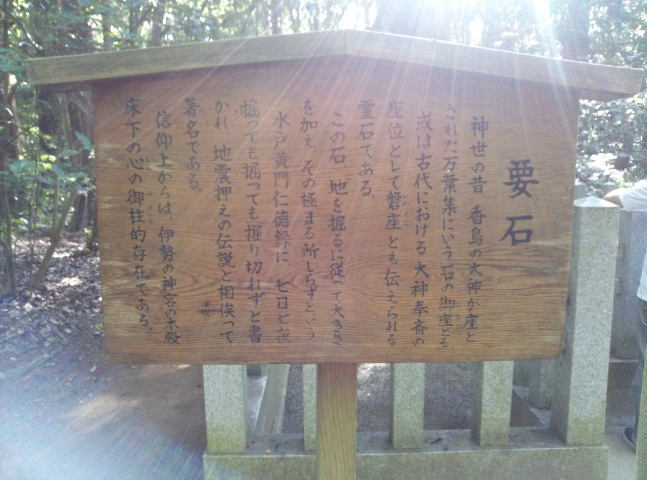 要石
神世の昔 香島の大神が座と
された万葉集にいう石の御座とも
或は古代における大神奉斎の
座位として磐座とも伝えられる
霊石である。
この石、地を掘るに従って大きさ
を加え その極まる所しらずという
水戸黄門仁徳録に 七日七夜
掘っても掘っても掘り切れずと書
かれ 地震押えの伝説と相俟って
著名である。
信仰上からは、伊勢の神宮の本殿
床下の心の御柱的存在である。